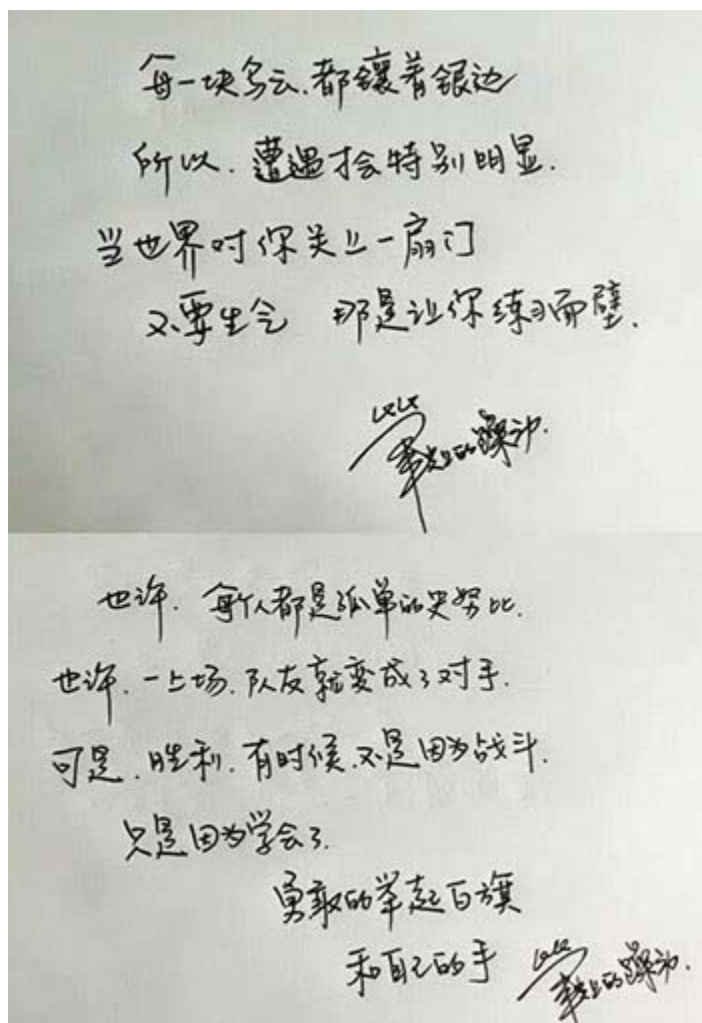 每一块乌云.都镶着银边
所以.遭遇才会特别明显.
当世界对你关上一扇门
不要生气 那是让你练习面壁.
的躁动.
也许.每个人都是孤单的史努比.
也许.一上场.队友就变成了对手.
可是.胜利.有时候.不是因为战斗.
只是因为学会了.
勇敢的举起白旗
和自己的手
的躁动.